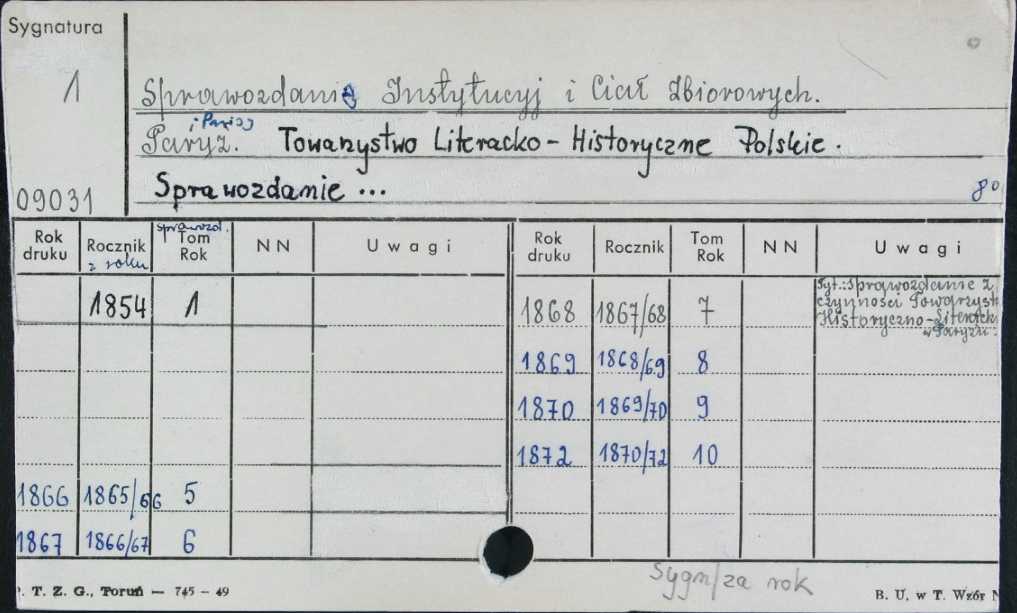 Sygnatura
1
Sprawozdanie Instytucyj i Ciał Zbiorowych.
i Paryż
Paryż. Towarzystwo Literacko-Historyczne Polskie.
09031
Sprawozdanie ...
8°
Rok druku Rocznik z roku sprawozd. Tom Rok NN Uwagi Rok druku Rocznik Tom Rok NN Uwagi
1854 1
1868 1867/68 7 Tyt.: Sprawozdanie z
czynności Towarzyst.
Historyczno-Literacki
w Paryżu.
1869 1868/69 8
1870 1869/70 9
1872 1870/72 10
1866 1865/66 5
1867 1866/67 6
Sygn/za rok
P. T. Z. G., Toruń — 745 — 49
B. U. w T. Wzór N